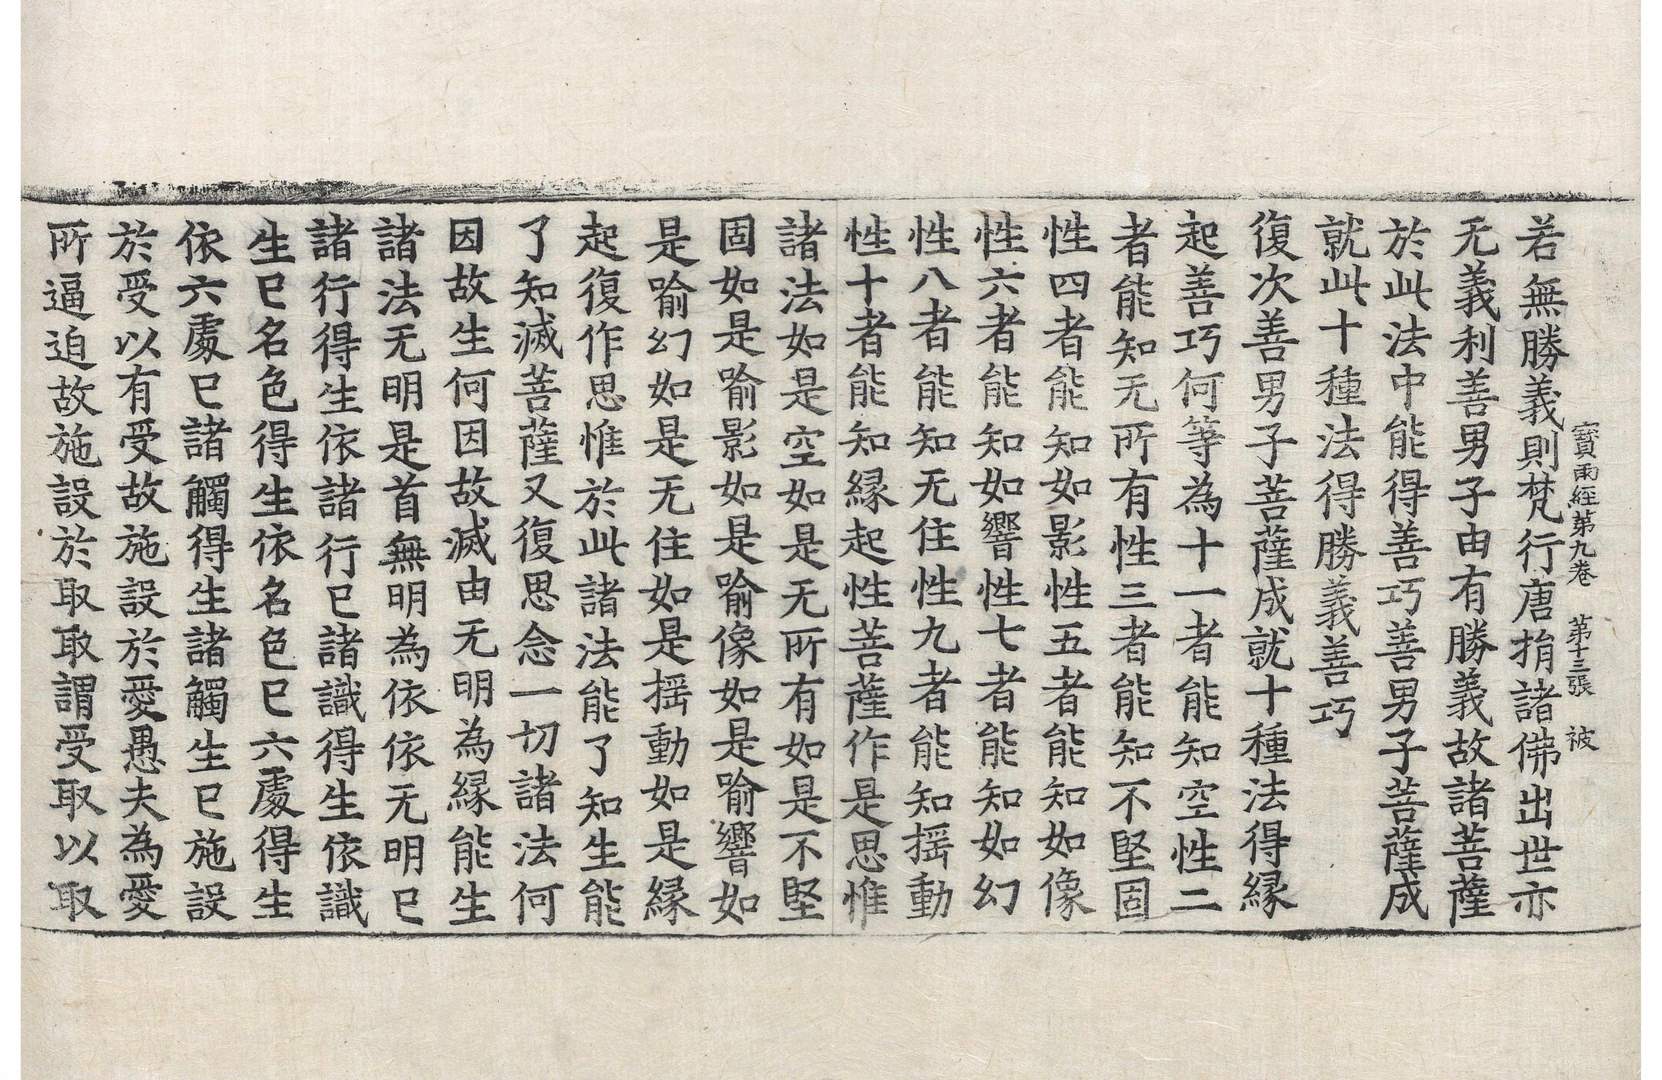 寶雨經第九卷　第十三張　被
若無勝義則梵行唐捐諸佛出世亦
无義利善男子由有勝義故諸菩薩
於此法中能得善巧善男子菩薩成
就此十種法得勝義善巧
復次善男子菩薩成就十種法得緣
起善巧何等為十一者能知空性二
者能知无所有性三者能知不堅固
性四者能知如影性五者能知如像
性六者能知如響性七者能知如幻
性八者能知无住性九者能知揺動
性十者能知緣起性菩薩作是思惟
諸法如是空如是无所有如是不堅
固如是喻影如是喻像如是喻響如
是喻幻如是无住如是揺動如是緣
起復作思惟於此諸法能了知生能
了知滅菩薩又復思念一切諸法何
因故生何因故滅由无明為緣能生
諸法无明是首無明為依依无明已
諸行得生依諸行已諸識得生依識
生已名色得生依名色已六處得生
依六處已諸觸得生諸觸生已施設
於受以有受故施設於愛愚夫為愛
所逼迫故施設於取取謂受取以取